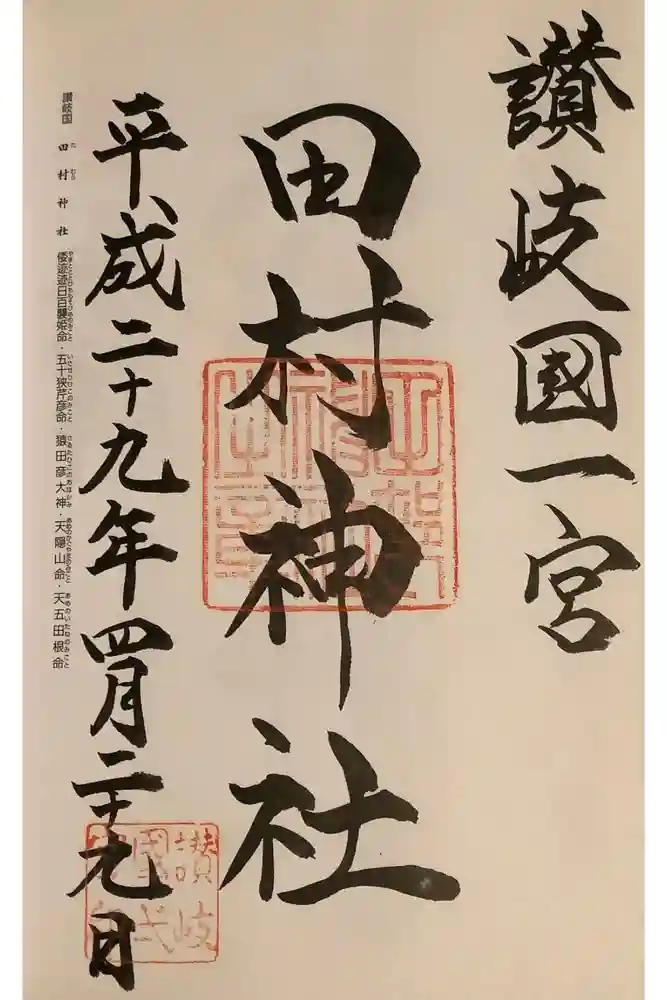 讃岐國一宮
田村神社
平成二十九年四月二十九日
讃岐国 田村神社 倭迹迹日百襲姫命・五十狭芹彦命・猿田彦大神・天隠山命・天五田根命
讃岐
國弌